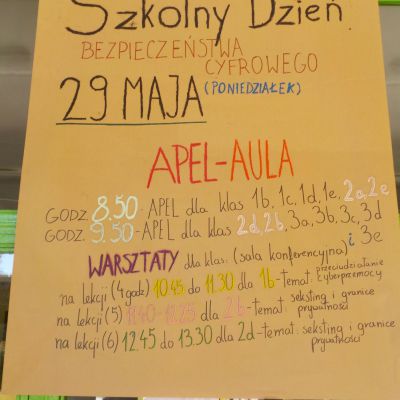 Szkolny Dzień
BEZPIECZEŃSTWA
CYFROWEGO
29 MAJA (PONIEDZIAŁEK)
APEL-AULA
GODZ. 8.50 - APEL dla klas 1b, 1c, 1d, 1e, 2a, 2e
GODZ. 9.50 - APEL dla klas 2d, 2b, 3a, 3b, 3c, 3d
i 3e
WARSZTATY dla klas: (sala konferencyjna)
na lekcji (4 godz) 10.45 do 11.30 dla 1b - temat: przeciwdziałanie
cyberprzemocy
na lekcji (5) 11.40 - 12.25 dla 2b - temat: seksting i granice
prywatności
na lekcji (6) 12.45 do 13.30 dla 2d - temat: seksting i granice
prywatności